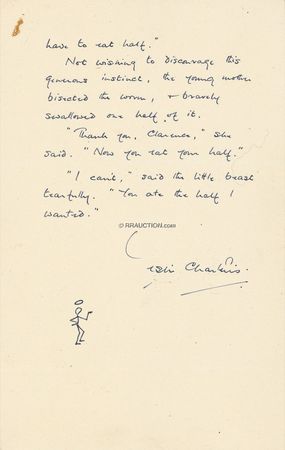 have to eat half."
Not wishing to discourage this
generous instinct, the young mother
bisected the worm, & bravely
swallowed one half of it.
"Thank you, Clarence," she
said. "Now you eat your half."
"I can't," said the little beast
tearfully. "You ate the half I
wanted."
© RRAUCTION.com
Leslie Charteris.